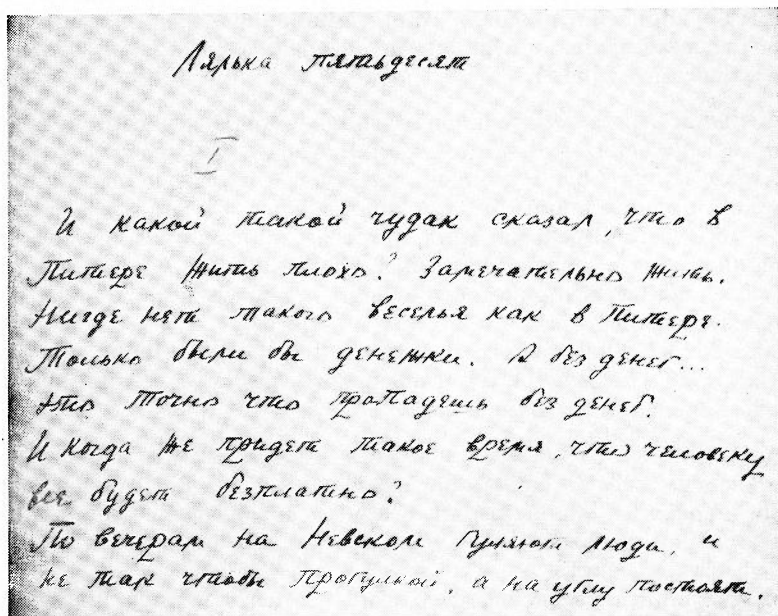 Лялька пятьдесят
I
И какой такой чудак сказал, что в
Питере жить плохо? Замечательно жить.
Нигде нет такого веселья как в Питере.
Только были бы денежки. А без денег...
Это точно что пропадешь без денег.
И когда же придет такое время, что человеку
все будет безплатно?
По вечерам на Невском гуляют люди, и
не так чтобы прогулкой, а на углу постоят.